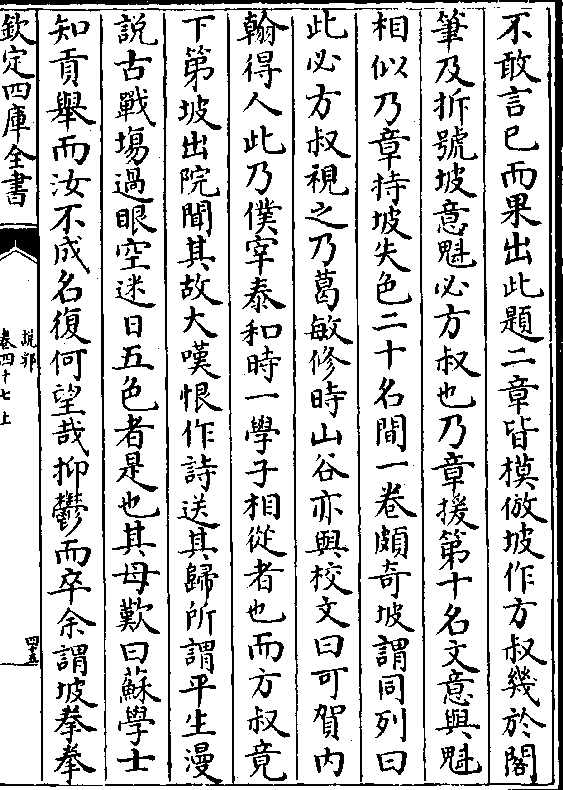 不敢言已而果出此題二章皆模倣坡作方叔幾於閣
筆及拆號坡意魁必方叔也乃章援第十名文意與魁
相似乃章持坡失色二十名間一卷頗奇坡謂同列曰
此必方叔視之乃葛敏修時山谷亦與校文曰可賀内
翰得人此乃僕宰泰和時一學子相從者也而方叔竟
下第坡出院聞其故大嘆恨作詩送其歸所謂平生漫
說古戰場過眼空迷日五色者是也其母歎曰蘇學士
知貢舉而汝不成名復何望哉抑鬱而卒余謂坡拳拳
欽定四庫全書
說郛
卷四十七上
四十五